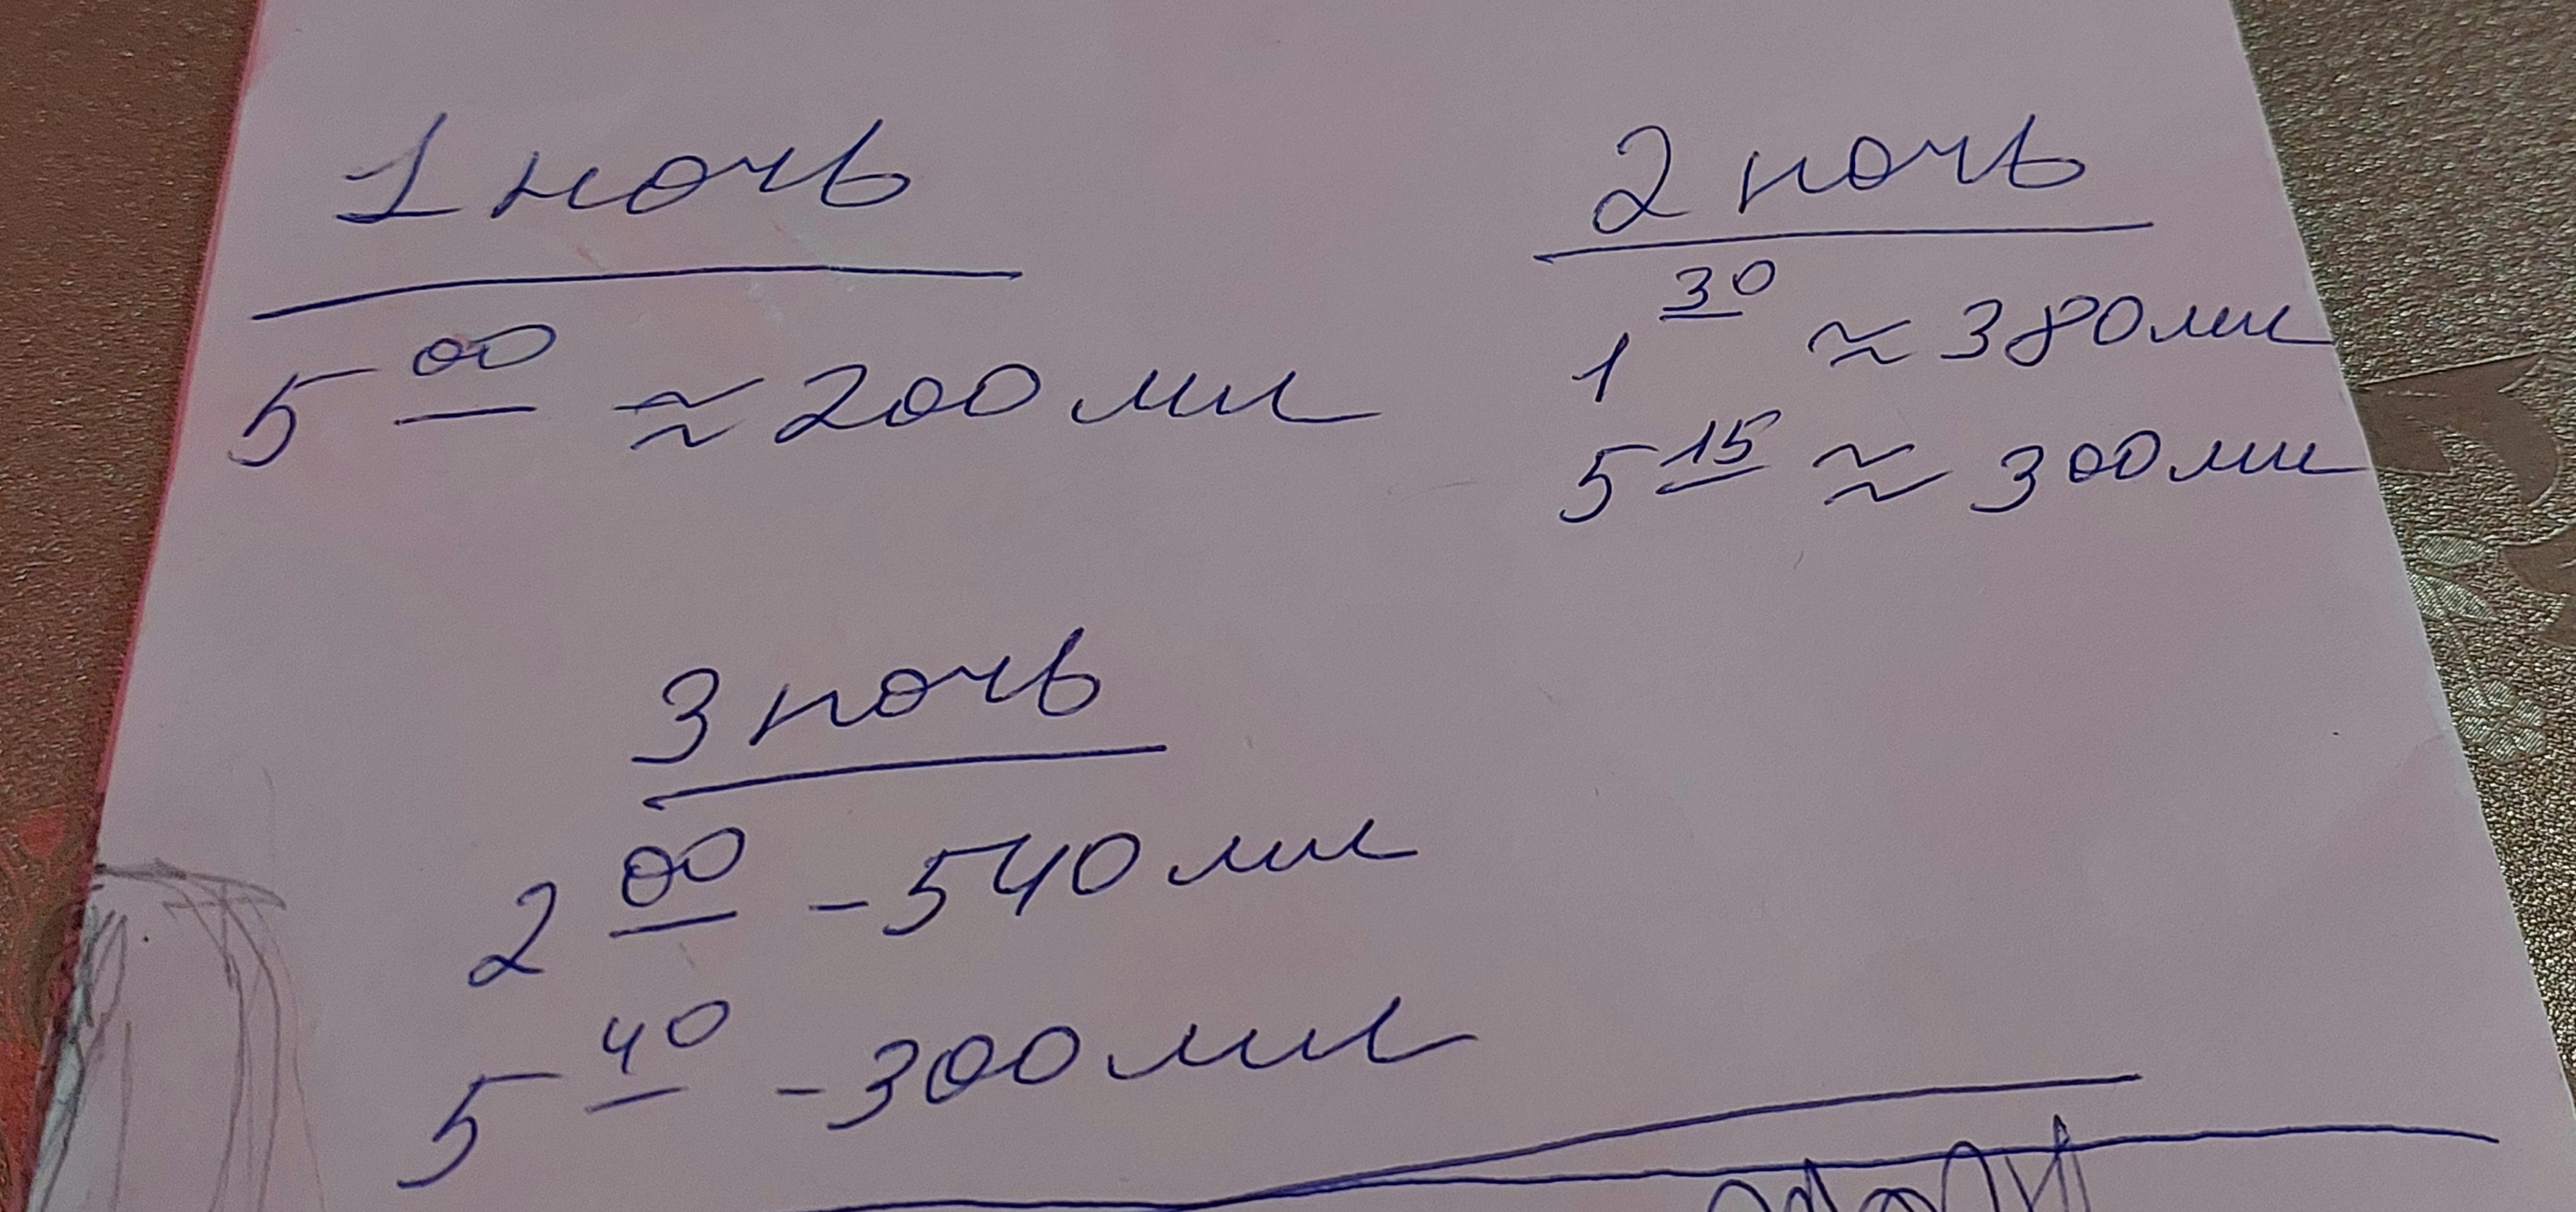 1 ночь
5 00 ≈ 200 мл
2 ночь
1 30 ≈ 380 мл
5 15 ≈ 300 мл
3 ночь
2 00 - 540 мл
5 40 - 300 мл